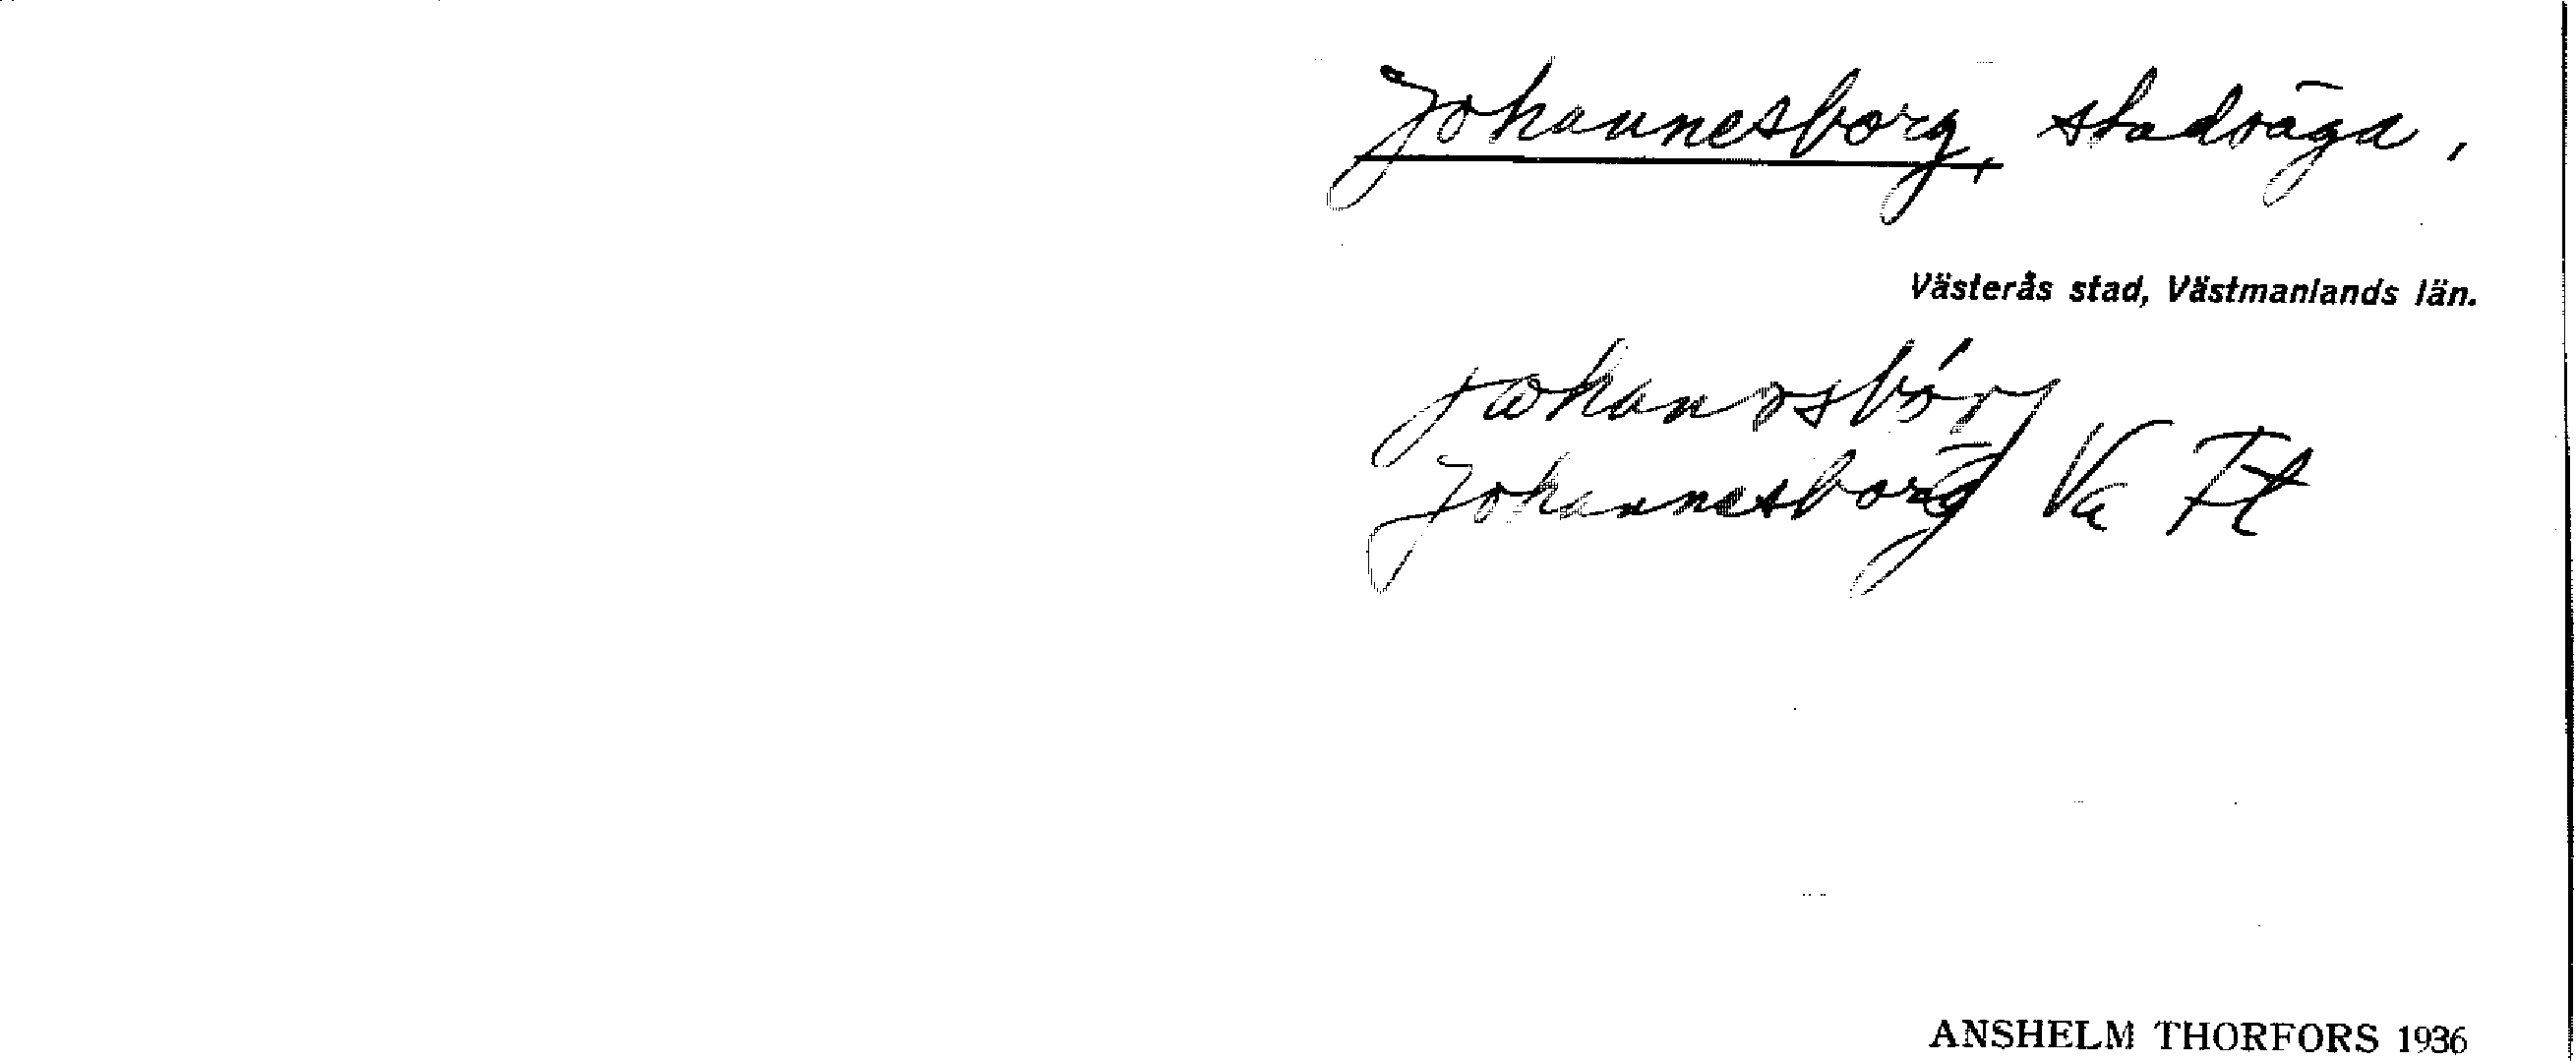 Johannesborg, stadsäga,
Västerås stad, Västmanlands län.
johanəsbórj
Johannesborg Va Ft
ANSHELM THORFORS 1936